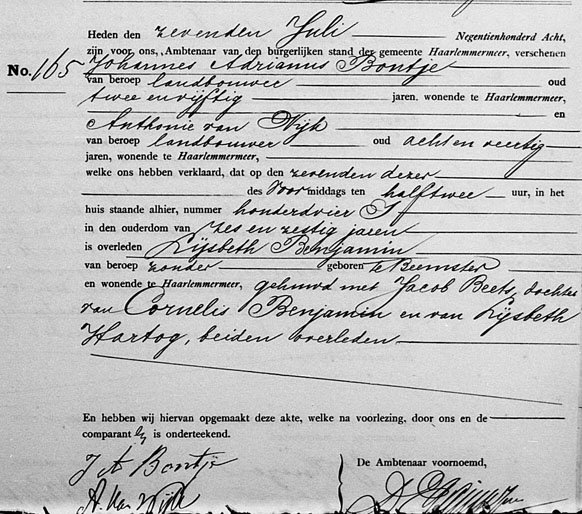 Heden den zevenden Juli Negentienhonderd Acht,
zijn voor ons, Ambtenaar van den burgerlijken stand der gemeente Haarlemmermeer, verschenen
No. 165 Johannes Adrianus Bontje
van beroep landbouwer oud
twee en vijftig jaren, wonende te Haarlemmermeer,
en
Anthonie van Wijk
van beroep landbouwer oud acht en veertig
jaren, wonende te Haarlemmermeer,
welke ons hebben verklaard, dat op den zevenden dezer
des Voormiddags ten half twee uur, in het
huis staande alhier, nummer honderdvier S
in den ouderdom van zes en zestig jaren
is overleden Lijsbeth Benjamin
van beroep zonder geboren te Beemster
en wonende te Haarlemmermeer, gehuwd met Jacob Beets, dochter
van Cornelis Benjamin en van Lijsbeth
Hartog, beiden overleden
En hebben wij hiervan opgemaakt deze akte, welke na voorlezing, door ons en de
comparanten is onderteekend.
J A Bontje
De Ambtenaar voornoemd,
A. van Wijk